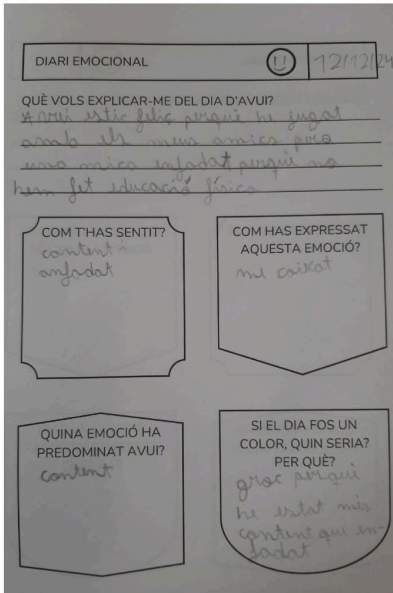 DIARI EMOCIONAL
12/12/24
QUÈ VOLS EXPLICAR-ME DEL DIA D'AVUI?
Avui estic feliç perquè he jugat
amb els meus amics però
una mica enfadat perquè no
hem fet educació física
COM T'HAS SENTIT?
content i
anfadat
COM HAS EXPRESSAT
AQUESTA EMOCIÓ?
me
QUINA EMOCIÓ HA
PREDOMINAT AVUI?
content
SI EL DIA FOS UN
COLOR, QUIN SERIA?
PER QUÈ?
groc perquè
he estat més
content que en-
fadat